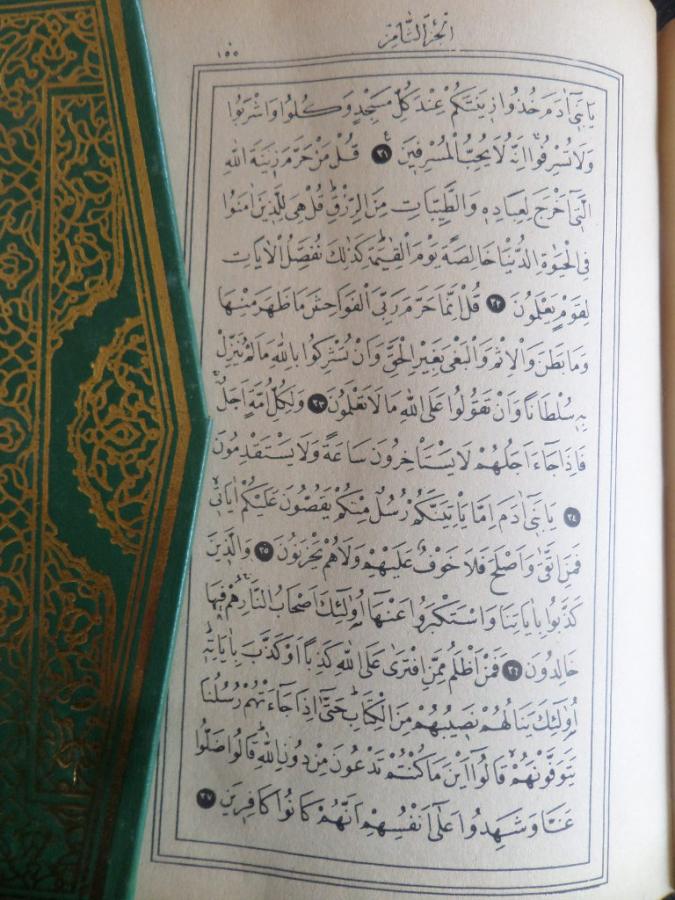 الجزء الثامن
١٥٥
يَا بَنِي آدَمَ خُذُوا زِينَتَكُمْ عِنْدَ كُلِّ مَسْجِدٍ وَكُلُوا وَاشْرَبُوا
وَلَا تُسْرِفُوا اِنَّهُ لَا يُحِبُّ الْمُسْرِفِينَ ٣١ قُلْ مَنْ حَرَّمَ زِينَةَ اللّٰهِ
الَّتِي اَخْرَجَ لِعِبَادِهِ وَالطَّيِّبَاتِ مِنَ الرِّزْقِ قُلْ هِيَ لِلَّذِينَ اٰمَنُوا
فِي الْحَيٰوةِ الدُّنْيَا خَالِصَةً يَوْمَ الْقِيٰمَةِ كَذٰلِكَ نُفَصِّلُ الْاٰيَاتِ
لِقَوْمٍ يَعْلَمُونَ ٣٢ قُلْ اِنَّمَا حَرَّمَ رَبِّيَ الْفَوَاحِشَ مَا ظَهَرَ مِنْهَا
وَمَا بَطَنَ وَالْاِثْمَ وَالْبَغْيَ بِغَيْرِ الْحَقِّ وَاَنْ تُشْرِكُوا بِاللّٰهِ مَا لَمْ يُنَزِّلْ
بِهِ سُلْطَانًا وَاَنْ تَقُولُوا عَلَى اللّٰهِ مَا لَا تَعْلَمُونَ ٣٣ وَلِكُلِّ اُمَّةٍ اَجَلٌ
فَاِذَا جَاءَ اَجَلُهُمْ لَا يَسْتَأْخِرُونَ سَاعَةً وَلَا يَسْتَقْدِمُونَ
٣٤ يَا بَنِي اٰدَمَ اِمَّا يَأْتِيَنَّكُمْ رُسُلٌ مِنْكُمْ يَقُصُّونَ عَلَيْكُمْ اٰيَاتِي
فَمَنِ اتَّقٰى وَاَصْلَحَ فَلَا خَوْفٌ عَلَيْهِمْ وَلَا هُمْ يَحْزَنُونَ ٣٥ وَالَّذِينَ
كَذَّبُوا بِاٰيَاتِنَا وَاسْتَكْبَرُوا عَنْهَا اُولٰئِكَ اَصْحَابُ النَّارِ هُمْ فِيهَا
خَالِدُونَ ٣٦ فَمَنْ اَظْلَمُ مِمَّنِ افْتَرٰى عَلَى اللّٰهِ كَذِبًا اَوْ كَذَّبَ بِاٰيَاتِهِ
اُولٰئِكَ يَنَالُهُمْ نَصِيبُهُمْ مِنَ الْكِتَابِ حَتّٰى اِذَا جَاءَتْهُمْ رُسُلُنَا
يَتَوَفَّوْنَهُمْ قَالُوا اَيْنَ مَا كُنْتُمْ تَدْعُونَ مِنْ دُونِ اللّٰهِ قَالُوا ضَلُّوا
عَنَّا وَشَهِدُوا عَلٰى اَنْفُسِهِمْ اَنَّهُمْ كَانُوا كَافِرِينَ ٣٧